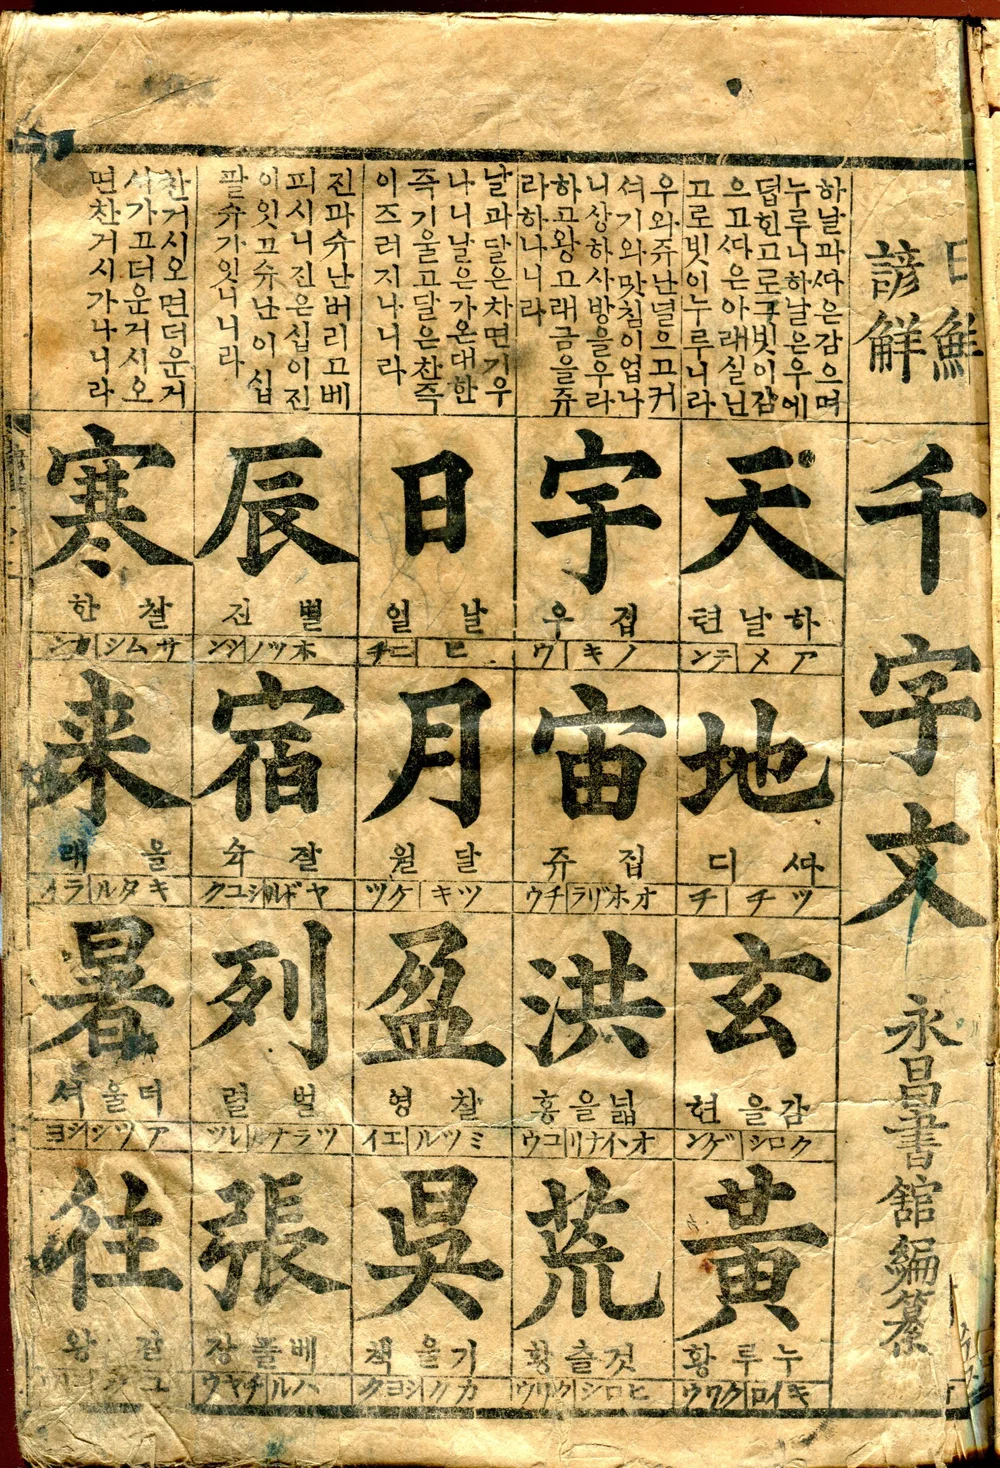 日鮮
諺觧
千字文
永昌書館編纂
하날과ᄯᅡ은감으며
누루니하날은우에
덥힌고로그빗이감
으고ᄯᅡ은아래실닌
고로빗이누루니라
天
하날 텬
アメ テン
地
ᄯᅡ 디
ツチ チ
玄
감을 현
クロシ ゲン
黃
누루 황
キイロ クワウ
우와쥬난널으고커
셔기와맛칠이업나
니상하사방을우라
하고왕고래금을쥬
라하나니라
宇
집 우
ノキ ウ
宙
집 쥬
オホゾラ チウ
洪
넓을 홍
オイナリ コウ
荒
것츨 황
ヒロシ クワウ
날과달은차면기우
나니날은가온대한
즉기울고달은찬즉
이즈러지나니라
日
날 일
ヒ ニチ
月
달 월
ツキ ゲツ
盈
찰 영
ミツル エイ
昃
기울 책
カク シヨク
진과슈난버리고베
피시니진은십이진
이잇고슈난이십
팔슈가잇나니라
辰
별 진
ホツノ シン
宿
잘 슈
ヤドル シユク
列
벌 렬
ツラナル レツ
張
베풀 장
ハル チヤウ
찬거시오면더운거
시가고더운거시오
면찬거시가나니라
寒
찰 한
サムシ カン
来
올 래
キタル ライ
暑
더울 셔
アツシ シヨ
往
갈 왕